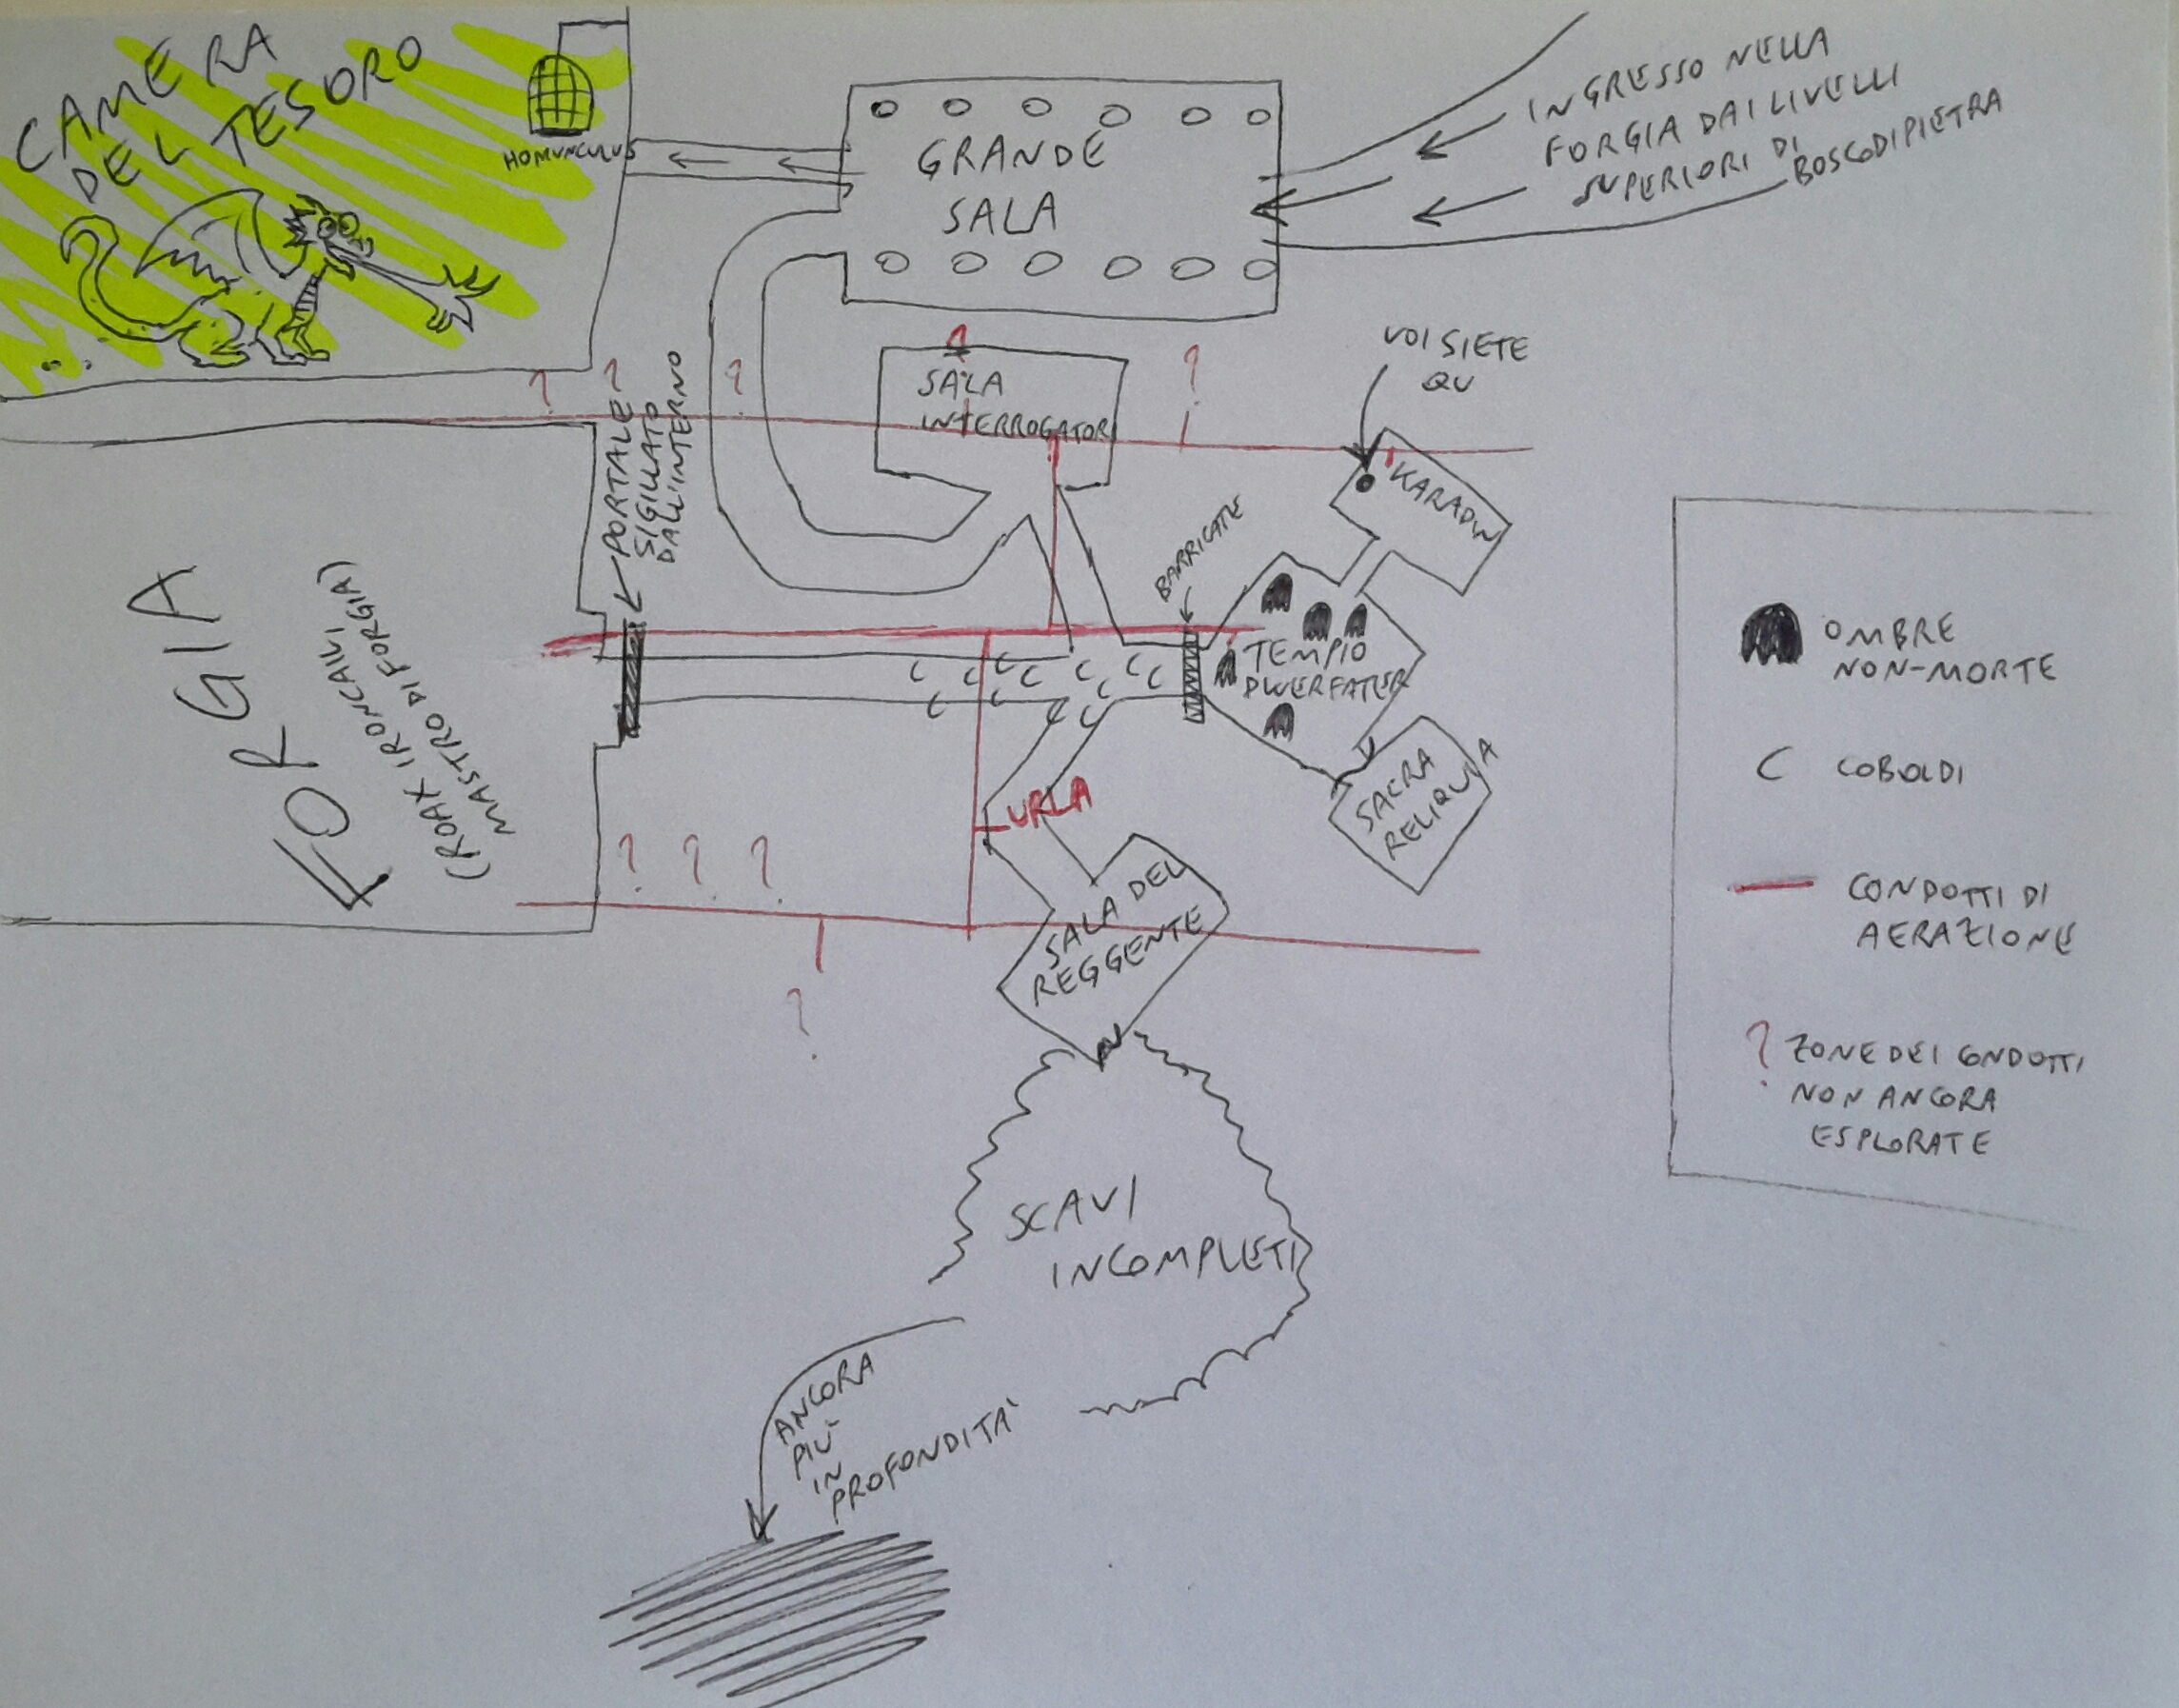 CAMERA
DEL TESORO
HOMUNCULUS
GRANDE
SALA
INGRESSO NELLA
FORGIA DAI LIVELLI
SUPERIORI DI
BOSCODIPIETRA
VOI SIETE
QU
SALA
INTERROGATOR
PORTALE
SIGILLATO
DALL'INTERNO
KARADIN
BARRICATE
TEMPIO
DWERFATER
SACRA
RELIQUIA
FORGIA
(ROAX IRONCAILVI
MASTRO DI FORGIA)
URLA
SALA DEL
REGGENTE
SCAVI
INCOMPLETI
ANCORA
PIU'
IN
PROFONDITA'
OMBRE
NON-MORTE
C COBOLDI
CONDOTTI DI
AERAZIONE
? ZONE DEI CONDOTTI
NON ANCORA
ESPLORATE